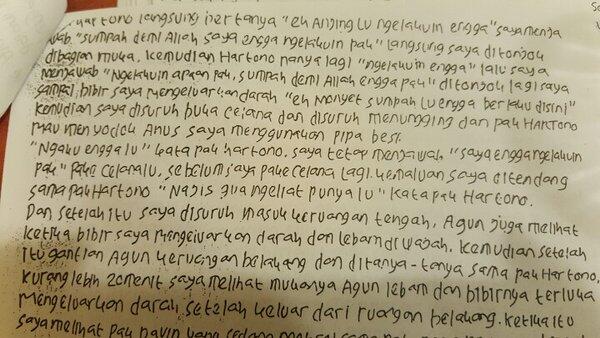 Hartono langsung bertanya "eh Anjing lu ngelakuin engga" saya menja
wab "sumpah demi Allah saya engga ngelakuin pak" langsung saya ditonjok
dibagian muka. kemudian Hartono nanya lagi "ngelakuin engga" lalu saya
menjawab "Ngelakuin apaan pak, sumpah demi Allah engga pak" ditonjok lagi saya
sampai bibir saya mengeluarkan darah "eh Monyet sumpah lu engga berlaku disini"
kemudian saya disuruh buka celana dan disuruh menungging dan pak HARTONO
mau menyodok Anus saya menggunakan pipa besi.
"Ngaku engga lu" kata pak hartono. saya tetap menjawab "saya engga ngelakuin
pak" pake celanalu. sebelum saya pake celana lagi. kemaluan saya ditendang
sama pak Hartono "Najis gua ngeliat punya lu" kata pak Hartono.
Dan setelah itu saya disuruh masuk keruangan tengah, Agun juga melihat
ketika bibir saya mengeluarkan darah dan lebam di wajah. kemudian setelah
itu gantian Agun keruangan belakang dan ditanya-tanya sama pak Hartono,
kurang lebih 20menit saya melihat mukanya Agun lebam dan bibirnya terluka
mengeluarkan darah, setelah keluar dari ruangan belakang. ketika itu
saya melihat pak yang sedang